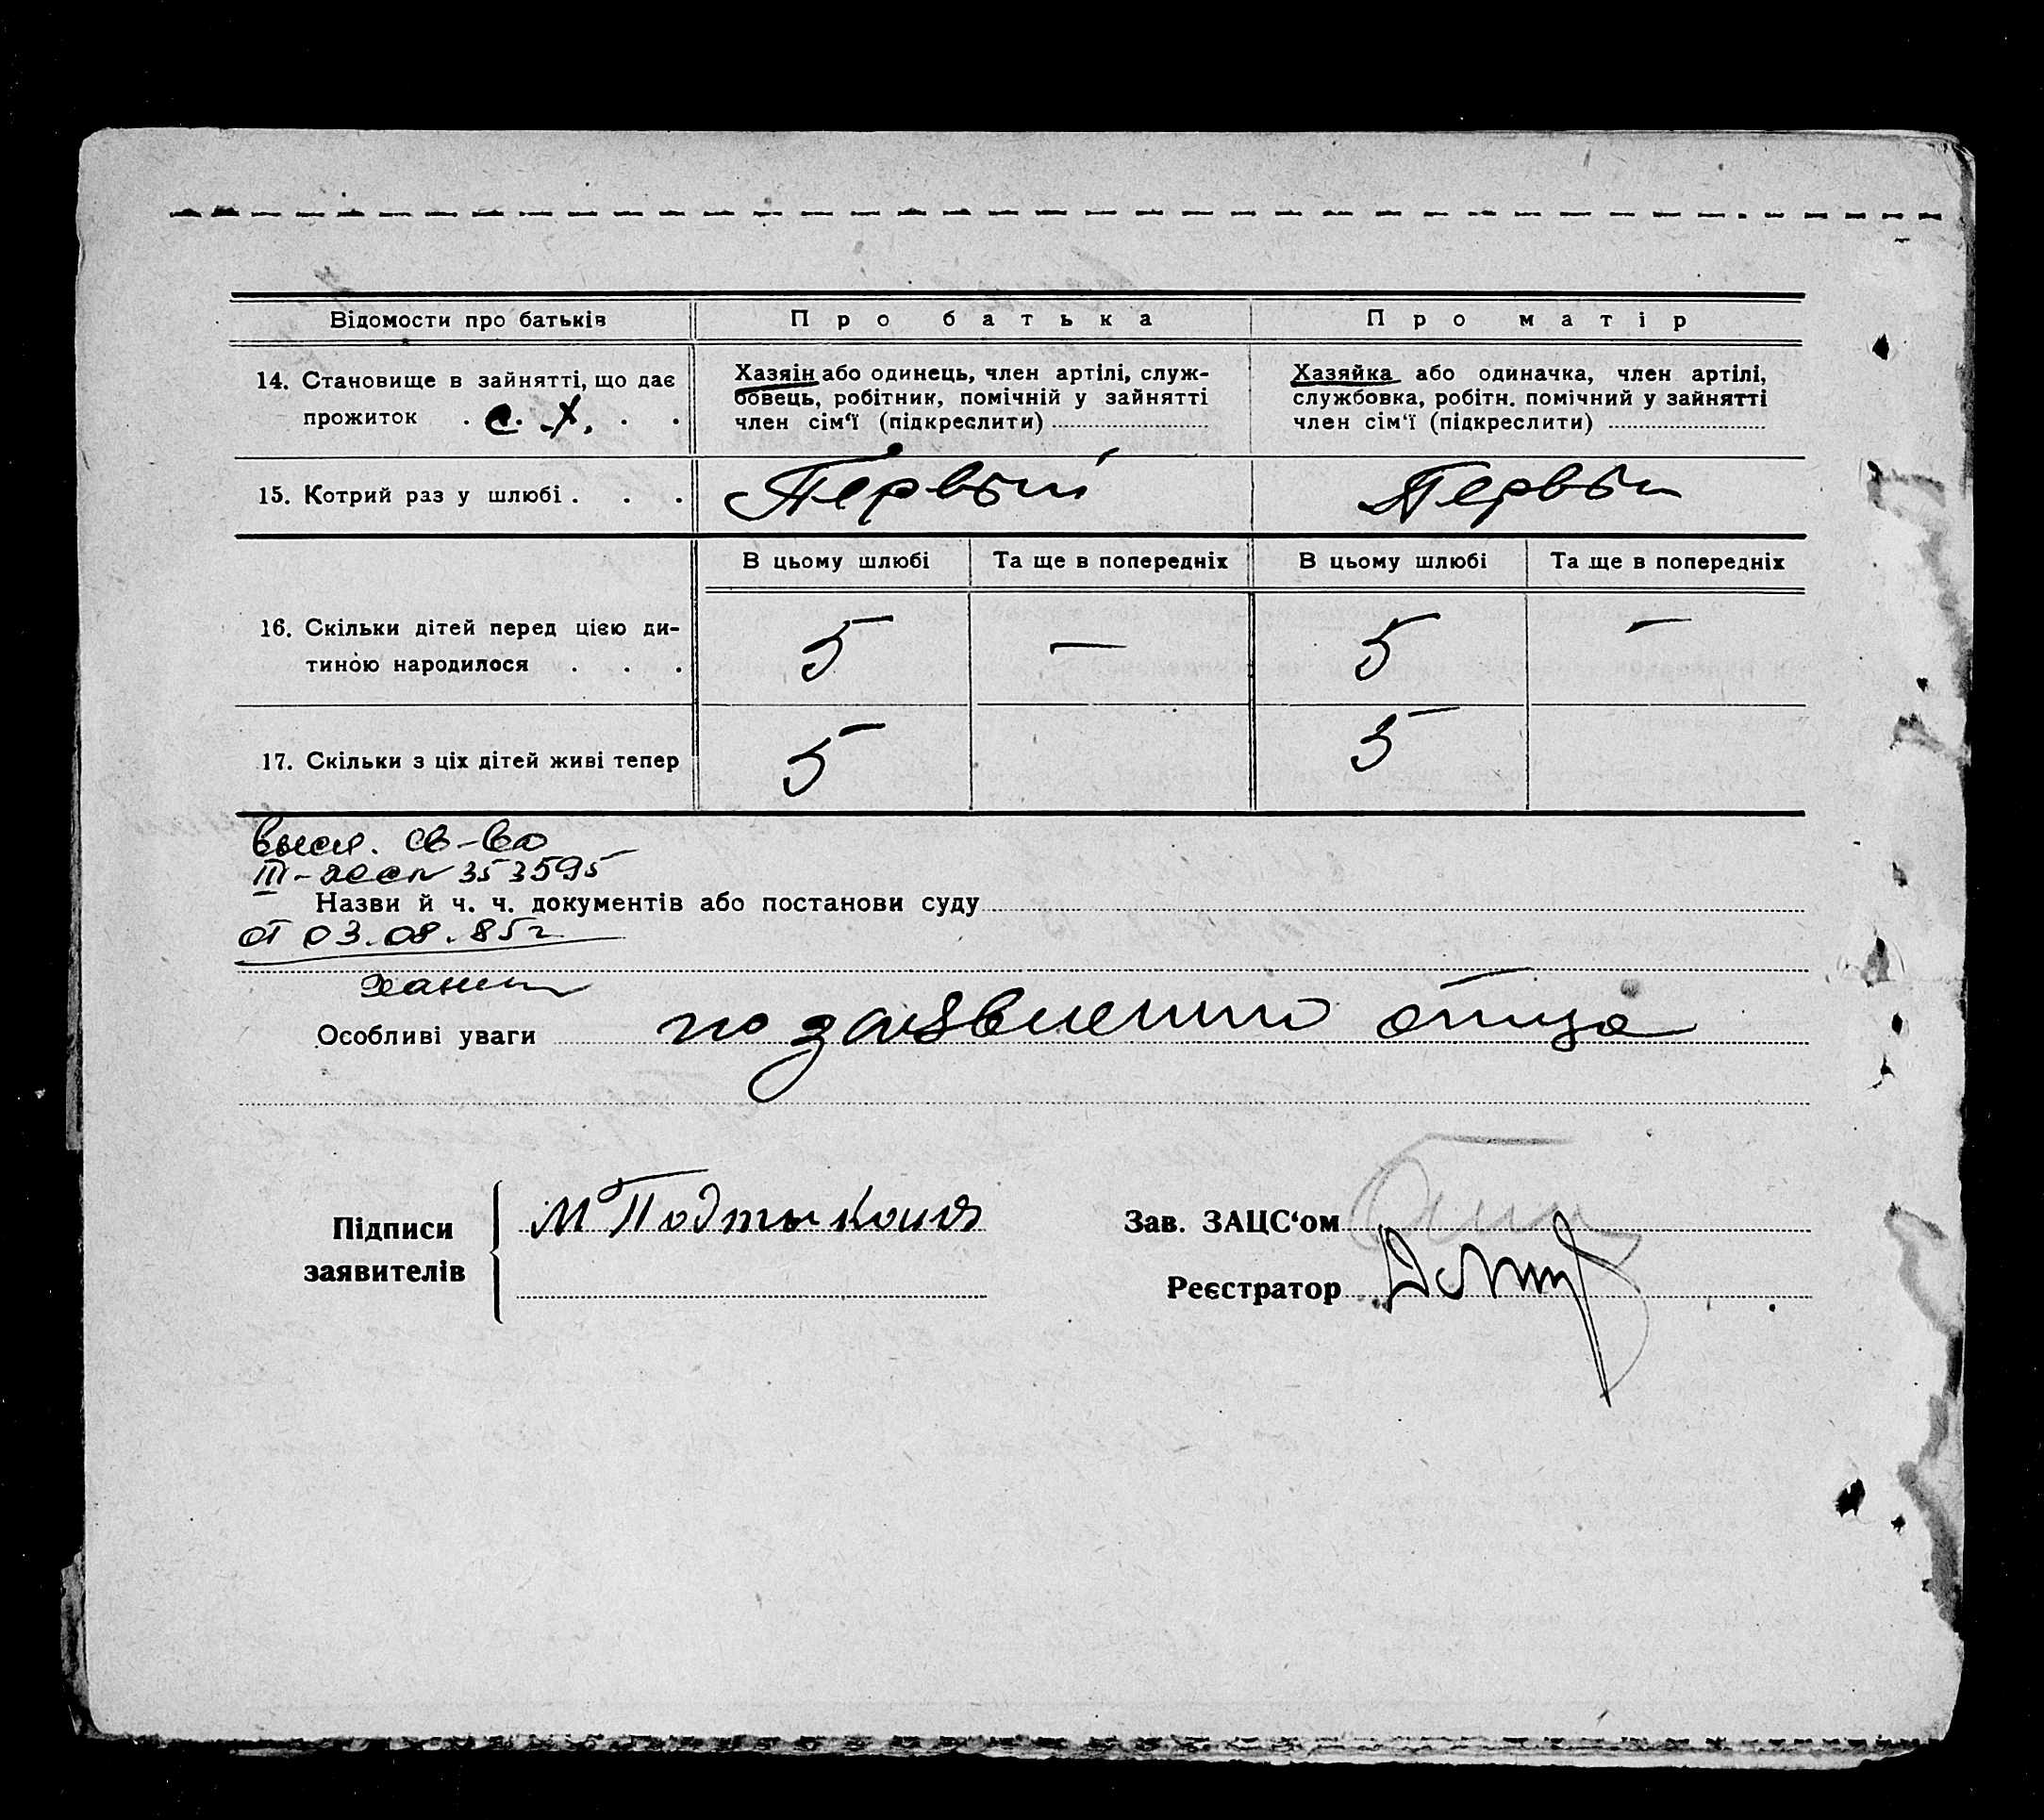 Відомости про батьків Про батька Про матір
14. Становище в зайнятті, що дає
прожиток . с. х. . .
Хазяін або одинець, член артілі, служ-
бовець, робітник, помічній у зайнятті
член сім'ї (підкреслити)
Хазяйка або одиначка, член артілі,
службовка, робітн. помічний у зайнятті
член сім'ї (підкреслити)
15. Котрий раз у шлюбі . . . Первый Первый
В цьому шлюбі Та ще в попередніх В цьому шлюбі Та ще в попередніх
16. Скільки дітей перед цією ди-
тиною народилося . . . 5 — 5 —
17. Скільки з ціх дітей живі тепер 5 5
высл. св-во
III- 353595
Назви й ч. ч. документів або постанови суду
от 03.08.85г
Особливі уваги по заявлению отца
Підписи
заявителів
М
Зав. ЗАЦС'ом
Реєстратор